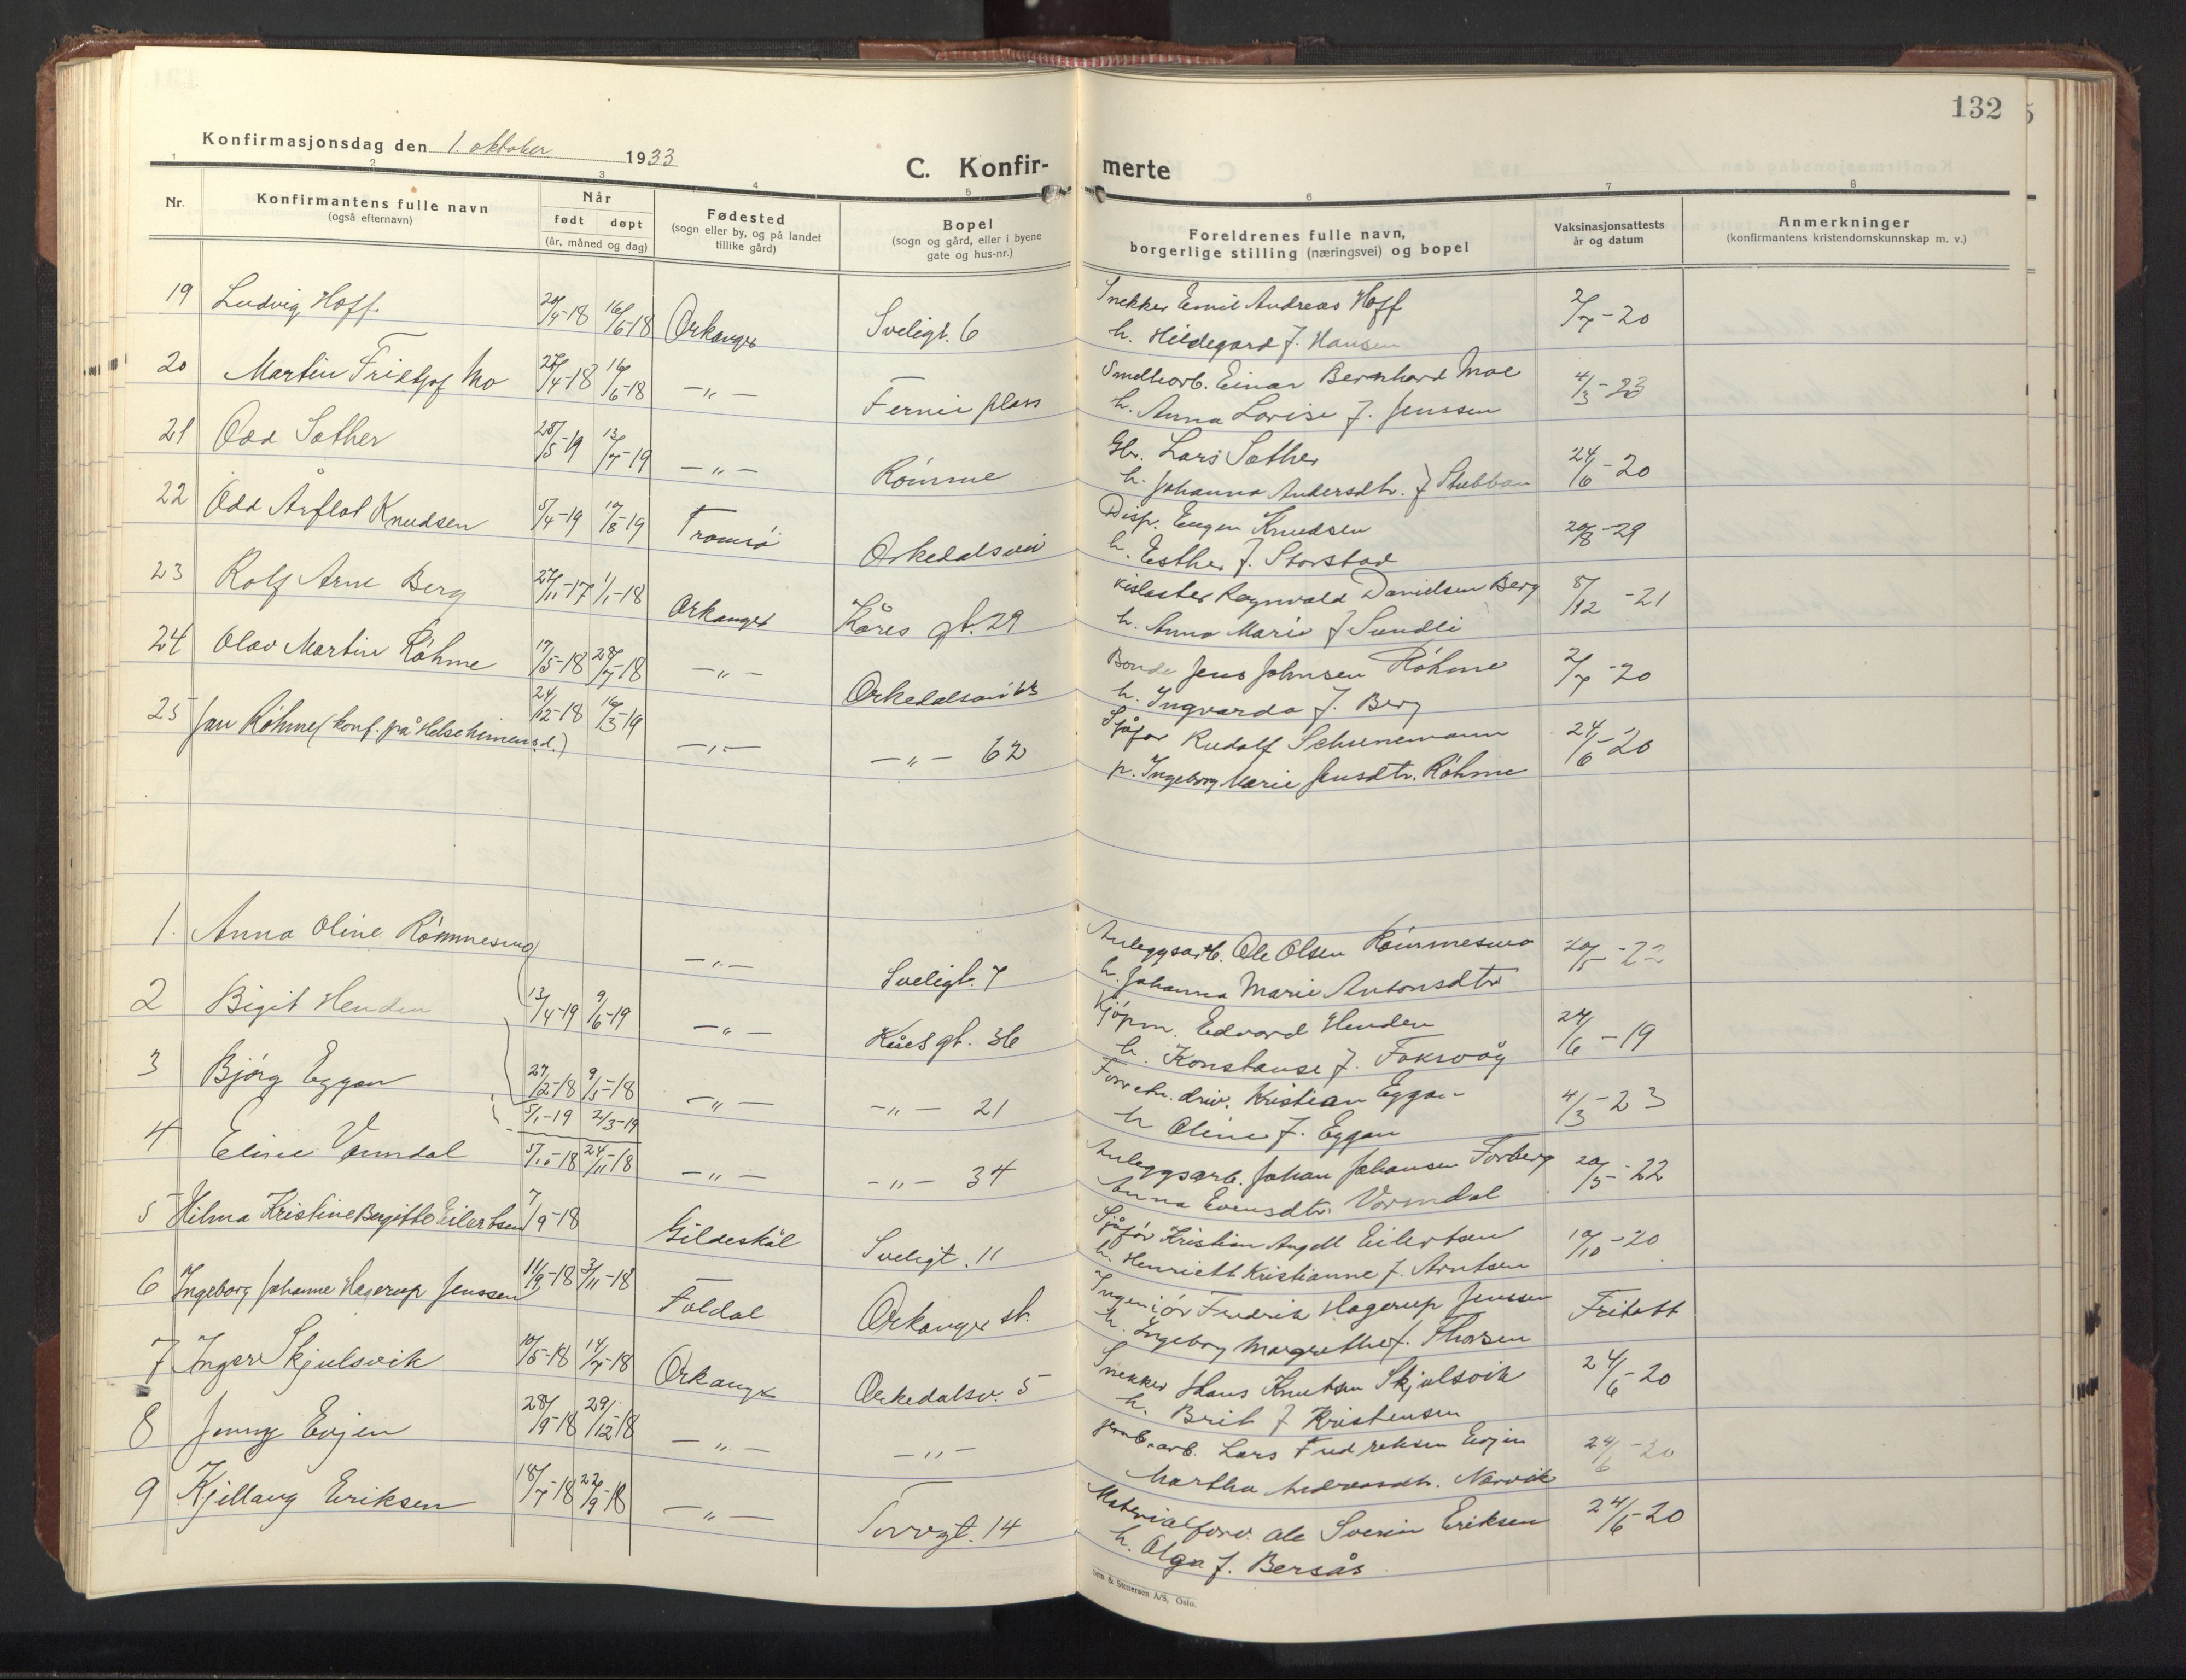 132
Konfirmasjonsdag den 1. oktober 1933
C. Konfir- merte
1 2 3 4 5 6 7 8
Nr. Konfirmantens fulle navn (også efternavn) Når født døpt (år, måned og dag) Fødested (sogn eller by, og på landet tillike gård) Bopel (sogn og gård, eller i byene gate og hus-nr.) Foreldrenes fulle navn, borgerlige stilling (næringsvei) og bopel Vaksinasjonsattests år og datum Anmerkninger (konfirmantens kristendomskunnskap m. v.)
19 Ludvig Hoff 20/4-18 16/6-18 Orkanger Sveligt. 6 Snekker Emil Andreas Hoff 2/7-20
h. Hildegard f. Hansen
20 Martin Fridtjof Mo 27/4-18 16/6-18 -"- plass Smelteorb. Einar Bernhard Moe 4/3-23
h. Anna Lovise f. Jenssen
21 Odd Sæther 28/5-19 13/7-19 -"- Rømme Gbr. Lars Sæther 24/6-20
h. Johanna Andersdtr. f Stubban
22 Odd Årflot Knudsen 5/4-19 17/8-19 Tromsø Orkedalsvei Disp. Eugen Knudsen 20/8-29
h. Esther f. Storstad
23 Rolf Arne Berg 27/11-17 1/1-18 Orkanger Kåres gt. 29 Kislaster Ragnvald Danielsen Berg 8/12-21
h. Anna Marie f Sundli
24 Olav Martin Røhme 17/5-18 28/7-18 -"- Orkedalsvei Bonde Jens Johnsen Røhme 2/7-20
h. Ingvarda f. Berg
25 Jan Røhme (konf. på Helseheimen s.d.) 24/12-18 16/3-19 -"- -"- 62 Sjåfør Rudolf Schunemann 24/6-20
p. Ingeborg Marie Jensdtr. Røhme
1. Anna Oline Rømmesmo -"- Sveligt. 7 Anleggsarb. Ole Olsen Rømmesmo 20/5-22
h. Johanna Marie Antonsdtr
2 Bigit Henden 13/4-19 9/6-19 -"- Kåres gt. 36 Kjøpm. Edvard Henden 24/6-19
h. Konstanse f. Foksvåg
3 Bjørg Eggan 27/2-18 9/5-18 -"- -"- 21 Forretn. driv. Kristian Eggan 4/3-23
5/1-19 2/3-19
h Oline f. Eggan
4 Eline Vormdal 5/10-18 24/11-18 -"- -"- 34 Anleggsarb. Johan Johansen Forberg 20/5-22
Anna Evensdtr. Vormdal
5 Hilma Kristine Bergitte Eilertsen 7/9-18 Gildeskål Sveligt. 11 Sjåfør Kristian Angell Eilertsen 10/10-20
h. Henriett Kristianne f. Arntsen
6 Ingeborg Johanne Hagerup Jenssen 11/9-18 3/11-18 Foldal Orkanger st. Ingeniør Fredrik Hagerup Jenssen Fritatt
h. Ingeborg Margrethe f. Thorsen
7 Inger Skjulsvik 10/5-18 14/7-18 Orkanger Orkedalsv. 5 Snekker Hans Knutsen Skjulsvik 24/6-20
h. Brit f Kristensen
8 Jenny Evjen 28/9-18 29/12-18 -"- -"- Jernb.arb. Lars Fredriksen Evjen 24/6-20
Martha Andreasdtr. Narvik
9 Kjellaug Eriksen 18/7-18 22/9-18 -"- Torvgt. 14 Materialforv. Ole Sverin Eriksen 24/6-20
h. Olga f. Bersås
& Stenersen A/S, Oslo.